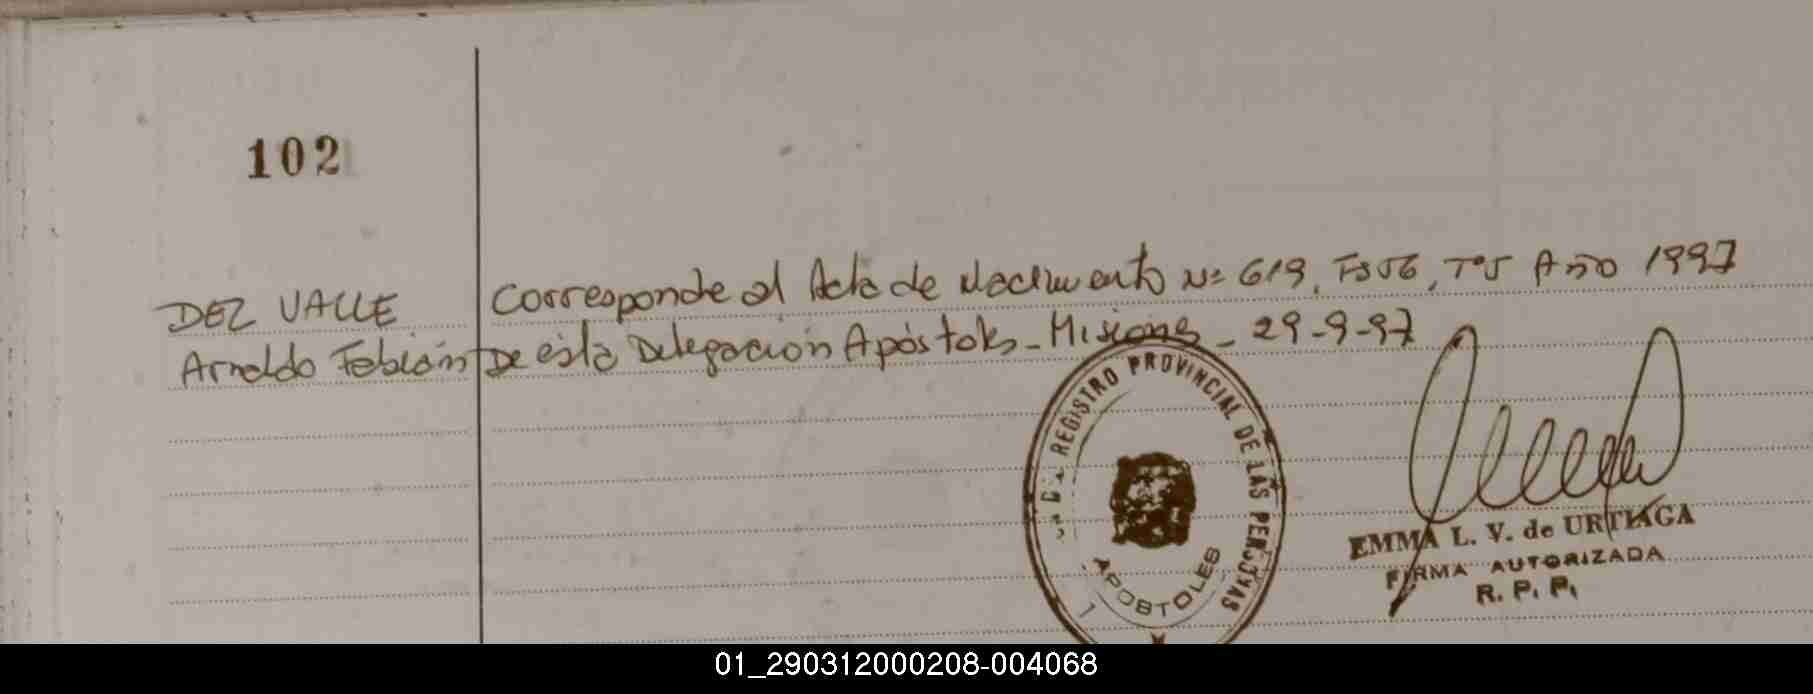 102
DEL VALLE
Arnoldo Fabián
Corresponde al Acta de Nacimiento Nº 619, Fs 56, Tº 5 Año 1997
De esta Delegación Apóstoles - Misiones - 29-9-97
REGISTRO PROVINCIAL DE LAS PERSONAS
APOSTOLES
EMMA L. V. de URTIAGA
FIRMA AUTORIZADA
R. P. P.
01_290312000208-004068